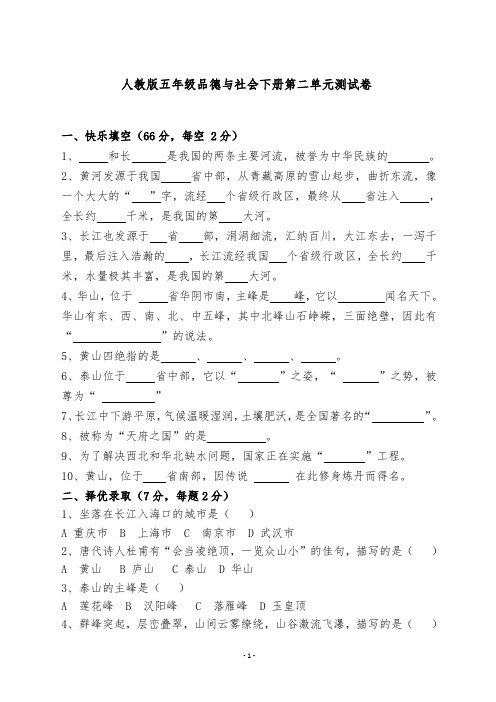 人教版五年级品德与社会下册第二单元测试卷
一、快乐填空（66分，每空 2分）
1、____和长____是我国的两条主要河流，被誉为中华民族的____。
2、黄河发源于我国____省中部，从青藏高原的雪山起步，曲折东流，像
一个大大的“__”字，流经__个省级行政区，最终从__省注入____，
全长约____千米，是我国的第__大河。
3、长江也发源于__省__部，涓涓细流，汇纳百川，大江东去，一泻千
里，最后注入浩瀚的__，长江流经我国__个省级行政区，全长约__千
米，水量极其丰富，是我国的第__大河。
4、华山，位于____省华阴市南，主峰是__峰，它以____闻名天下。
华山有东、西、南、北、中五峰，其中北峰山石峥嵘，三面绝壁，因此有
“____”的说法。
5、黄山四绝指的是____、____、____、____。
6、泰山位于____省中部，它以“____”之姿，“____”之势，被
尊为“____”
7、长江中下游平原，气候温暖湿润，土壤肥沃，是全国著名的“____”。
8、被称为“天府之国”的是____。
9、为了解决西北和华北缺水问题，国家正在实施“____”工程。
10、黄山，位于____省南部，因传说____在此修身炼丹而得名。
二、择优录取（7分，每题2分）
1、坐落在长江入海口的城市是（ ）
A 重庆市 B 上海市 C 南京市 D 武汉市
2、唐代诗人杜甫有“会当凌绝顶，一览众山小”的佳句，描写的是（ ）
A 黄山 B 庐山 C 泰山 D 华山
3、泰山的主峰是（ ）
A 莲花峰 B 汉阳峰 C 落雁峰 D 玉皇顶
4、群峰突起，层峦叠翠，山间云雾缭绕，山谷激流飞瀑，描写的是（ ）
- 1 -